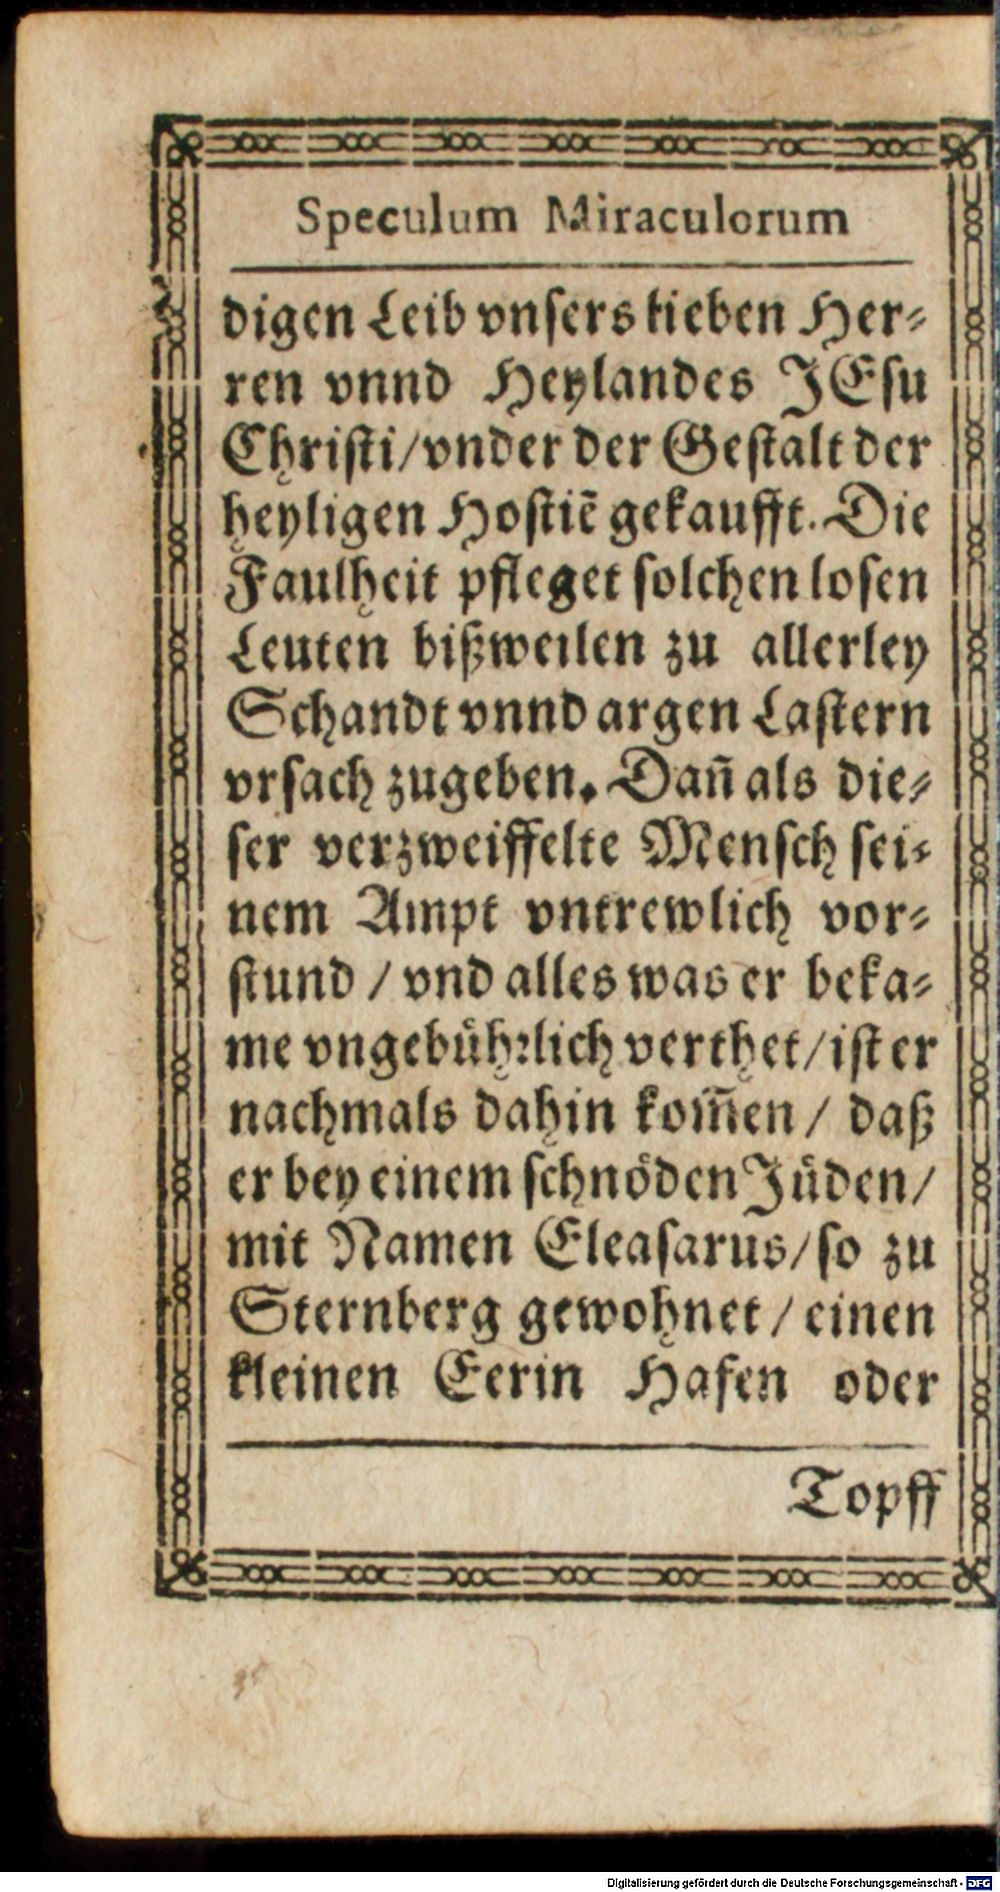 Speculum Miraculorum
digen Leib vnsers lieben Her⸗
ren vnnd Heylandes JEsu
Christi/vnder der Gestalt der
heyligen Hostiẽ gekaufft. Die
Faulheit pfleget solchen losen
Leuten bißweilen zu allerley
Schandt vnnd argen Lastern
vrsach zugeben. Dañ als die⸗
ser verzweiffelte Mensch sei⸗
nem Ampt vntrewlich vor⸗
stund / vnd alles was er beka⸗
me vngebührlich verthet/ist er
nachmals dahin kom̃en / daß
er bey einem schnöden Jüden/
mit Namen Eleasarus/so zu
Sternberg gewohnet / einen
kleinen Eerin Hafen oder
Topff
Digitalisierung gefördert durch die Deutsche Forschungsgemeinschaft - DFG